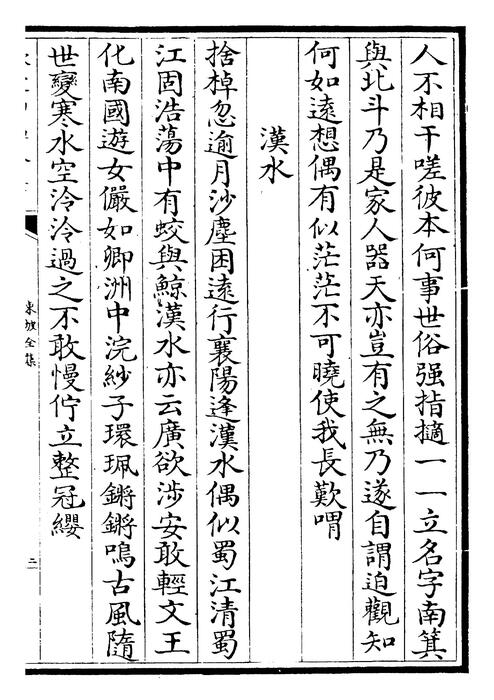 人不相干嗟彼本何事世俗强指擿一一立名字南箕
與北斗乃是家人器天亦豈有之無乃遂自謂迫觀知
何如遠想偶有似茫茫不可曉使我長歎喟
漢水
捨棹忽逾月沙塵困遠行襄陽逢漢水偶似蜀江清蜀
江固浩蕩中有蛟與鯨漢水亦云廣欲涉安敢輕文王
化南國遊女儼如卿洲中浣紗子環珮鏘鏘鳴古風隨
世變寒水空泠泠過之不敢慢佇立整冠纓
東坡全集
二